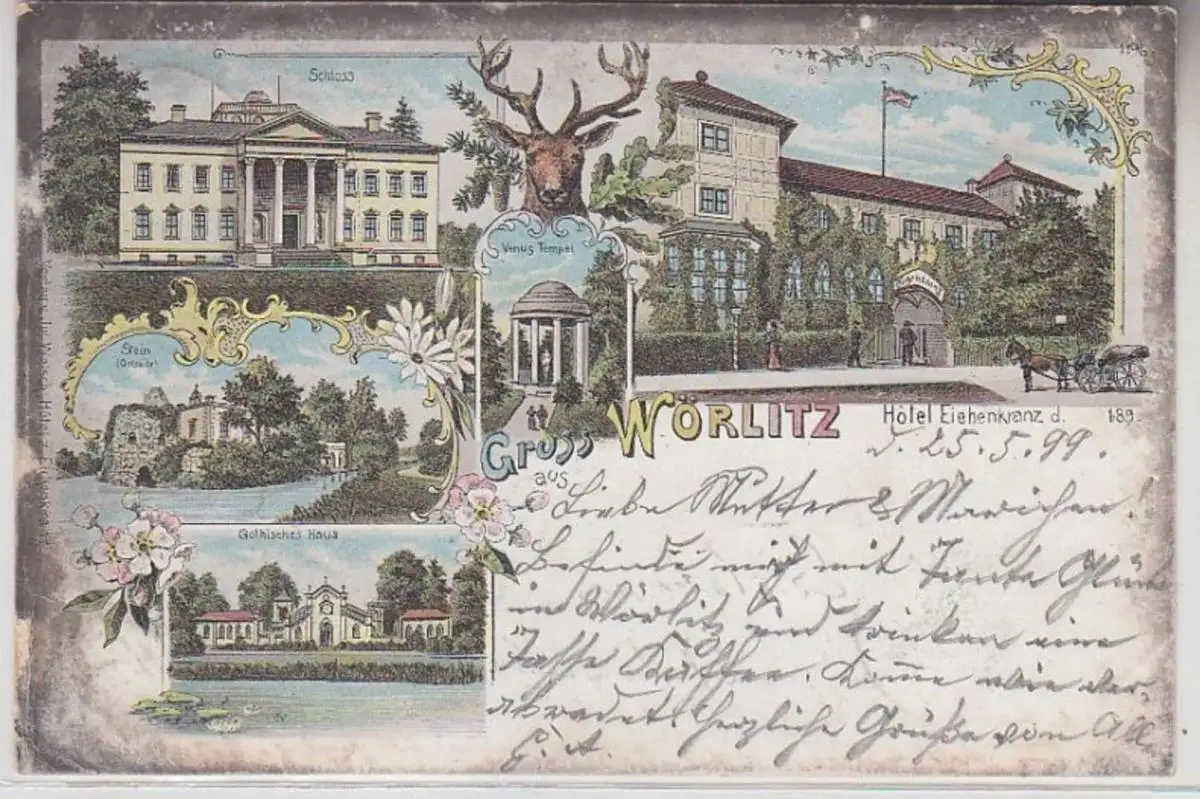 Schloss
Venus Tempel
Stein
(Ostseite)
Gothisches Haus
Gruss
aus
WÖRLITZ
Hôtel Eichenkranz d. 189
d. 25.5.99.
Liebe Mutter & Mariechen!
Befinde mich mit Tante
in Wörlitz und trinken eine
Tasse Kaffee. Komme wie ver-
abredet. Herzliche Grüße von All